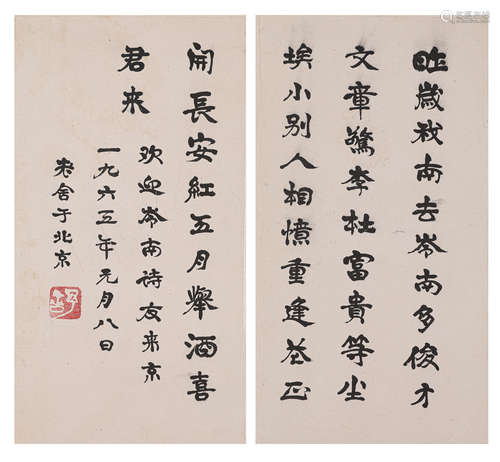 昨歲我南去岑南多俊才
文章驚李杜富貴等尘
埃小别人相憶重逢花正
開長安紅五月舉酒喜
君来
欢迎岑南诗友来京
一九六五年元月八日
老舍于北京